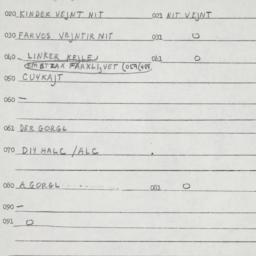 020 KINDER VEJNT NIT 021 NIT VEJNT
030 FARVOS VEJNTIR NIT 031 O
040 - LINKER KELLEJ 041 O
FARKLIJVET
050 CUVKAJT
060 —
061 DER GORGL
070 DIJ HALC / ALC .
080 A GORGL 081 O
090 —
091 O